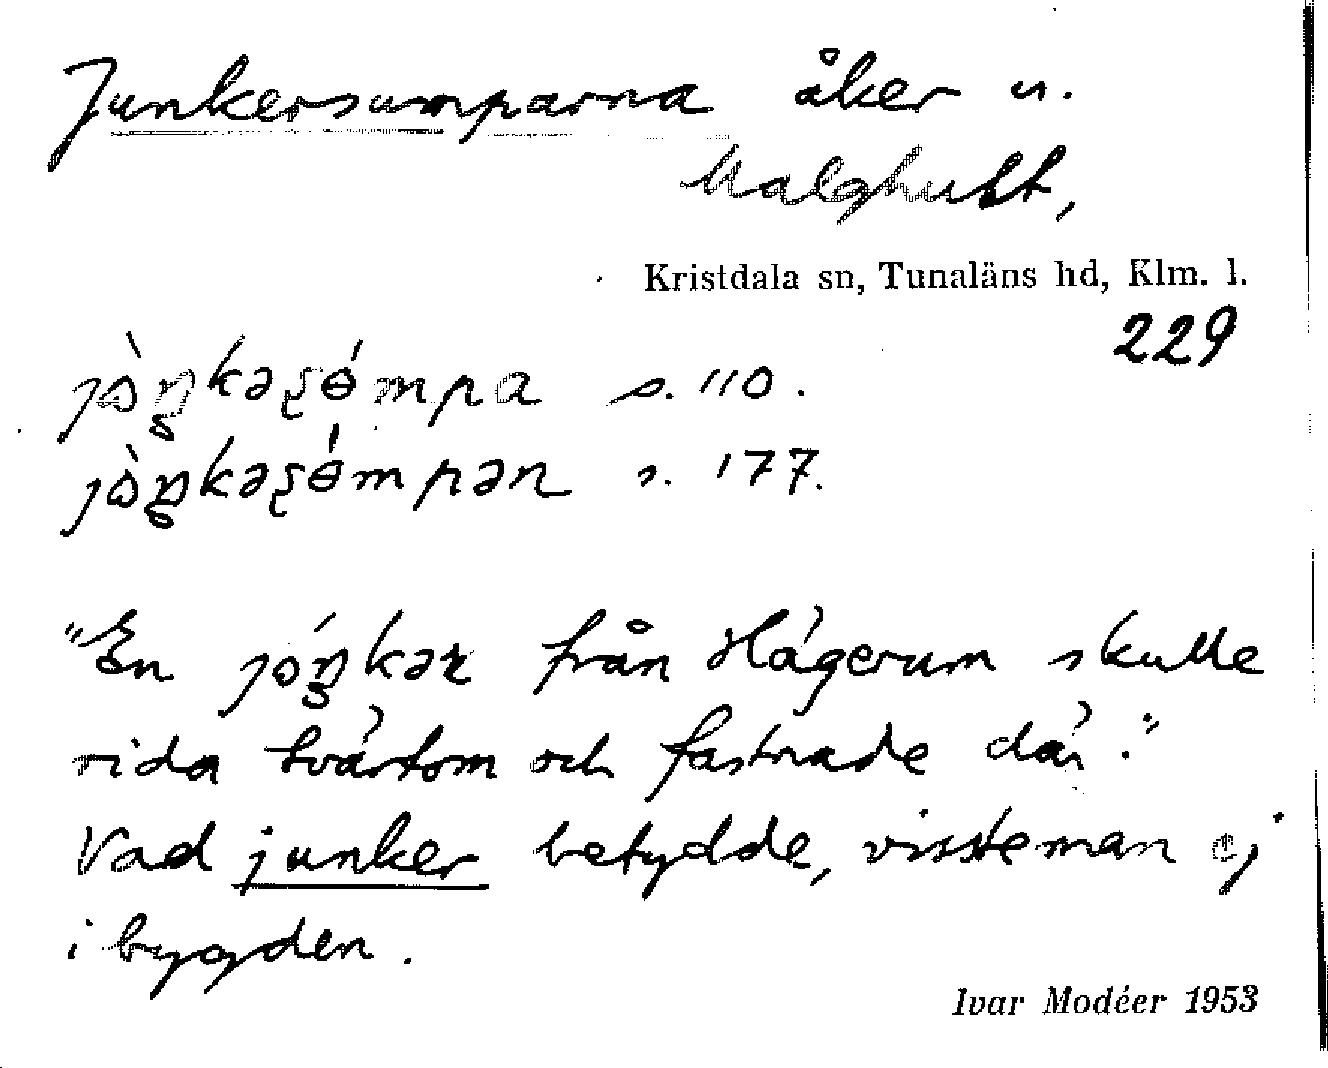 Junkersumparna åker u.
Malghult,
Kristdala sn, Tunaläns hd, Klm. l.
229
s. 110.
s. 177.
"En från Hägerum skulle
rida tvärtom och fastnade där."
Vad junker betydde, visste man ej
i bygden.
Ivar Modéer 1953